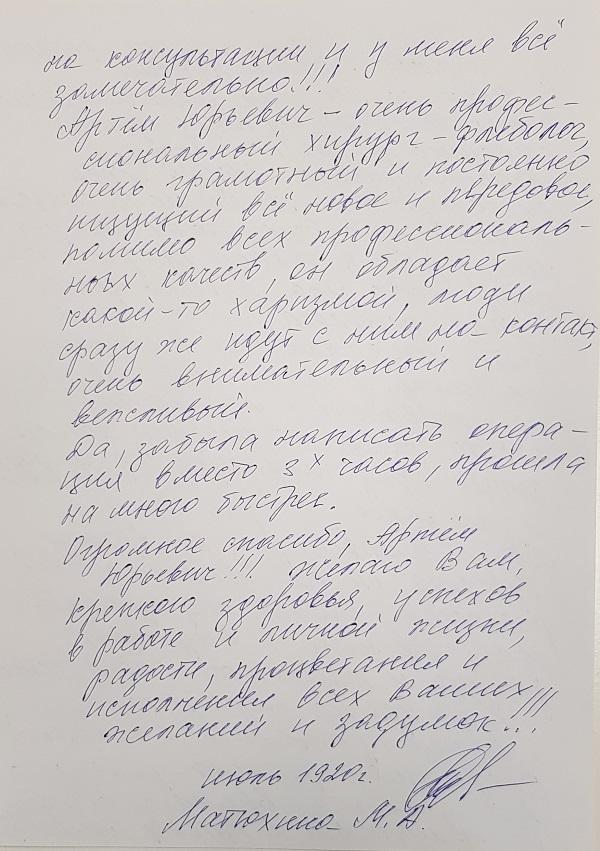 на консультации и у меня всё
замечательно!!!
Артём Юрьевич – очень профес-
сиональный хирург – флеболог,
очень грамотный и постоянно
ищущий всё новое и передовое,
помимо всех профессиональ-
ных качеств, он обладает
какой-то харизмой, люди
сразу же идут с ним на контакт,
очень внимательный и
вежливый.
Да, забыла написать опера-
ция вместо 3х часов, прошла
на много быстрее.
Огромное спасибо, Артём
Юрьевич!!! Желаю Вам,
крепкого здоровья, успехов
в работе и личной жизни,
радости, процветания и
исполнения всех Ваших
желаний и задумок...!!!
июль 1920г.
Матюхина М. А.